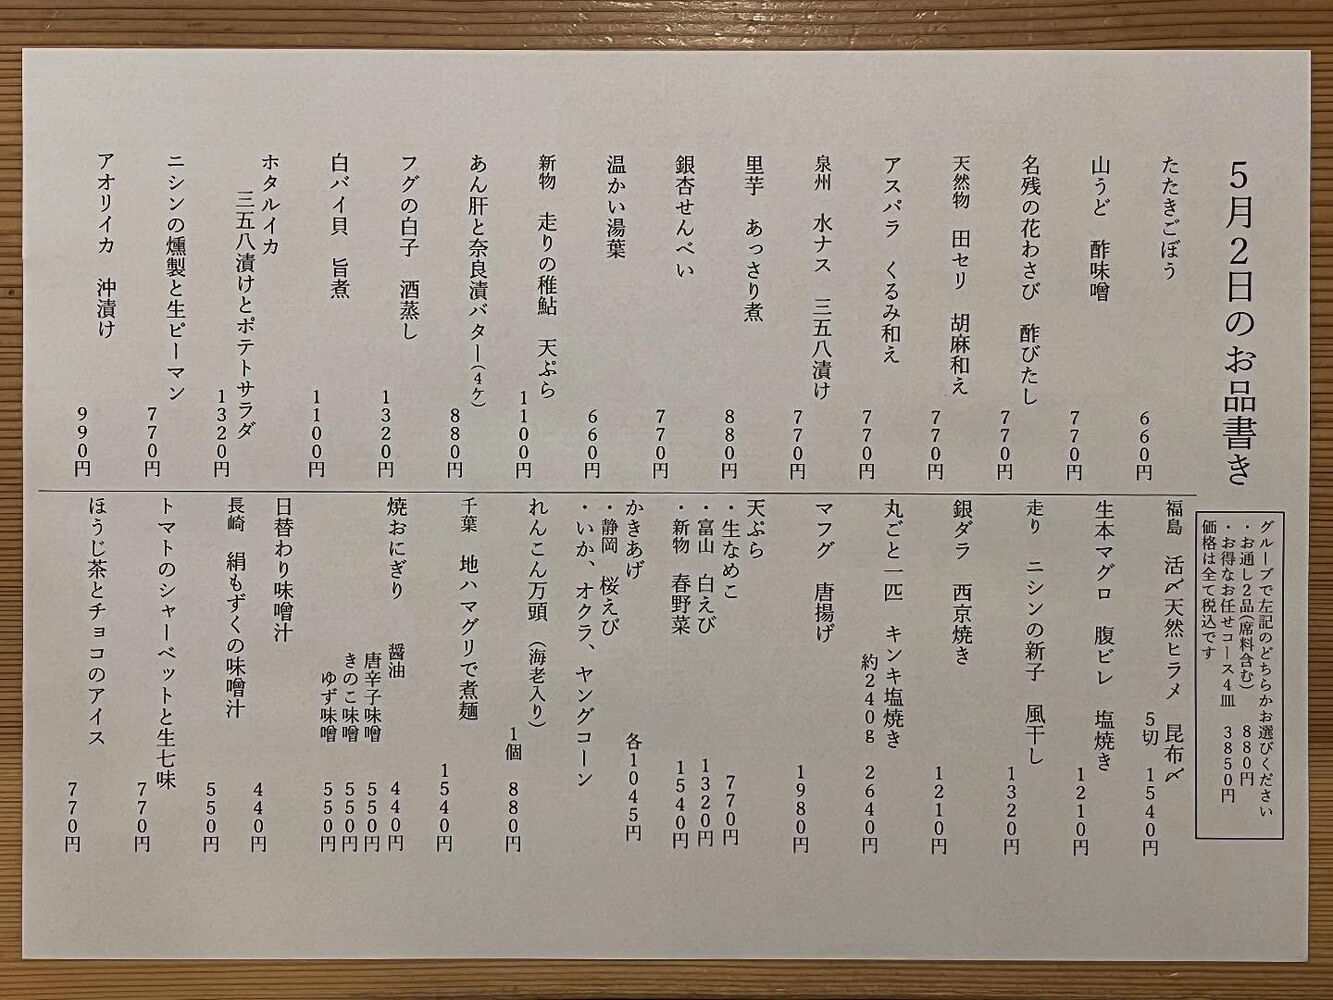 5月2日のお品書き
グループで左記のどちらかお選びください
・お通し2品(席料含む) 880円
・お得なお任せコース4皿 3850円
価格は全て税込です
たたきごぼう 660円
山うど 酢味噌 770円
名残の花わさび 酢びたし 770円
天然物 田セリ 胡麻和え 770円
アスパラ くるみ和え 770円
泉州 水ナス 三五八漬け 770円
里芋 あっさり煮 880円
銀杏せんべい 770円
温かい湯葉 660円
新物 走りの稚鮎 天ぷら 1100円
あん肝と奈良漬バター(4ケ) 880円
フグの白子 酒蒸し 1320円
白バイ貝 旨煮 1100円
ホタルイカ
三五八漬けとポテトサラダ 1320円
ニシンの燻製と生ピーマン 770円
アオリイカ 沖漬け 990円
福島 活〆天然ヒラメ 昆布〆
5切 1540円
生本マグロ 腹ビレ 塩焼き 1210円
走り ニシンの新子 風干し 1320円
銀ダラ 西京焼き 1210円
丸ごと一匹 キンキ塩焼き
約240g 2640円
マフグ 唐揚げ 1980円
天ぷら
・生なめこ 770円
・富山 白えび 1320円
・新物 春野菜 1540円
かきあげ 各1045円
・静岡 桜えび
・いか、オクラ、ヤングコーン
れんこん万頭 (海老入り)
1個 880円
千葉 地ハマグリで煮麺 1540円
焼おにぎり 醤油 440円
唐辛子味噌 550円
きのこ味噌 550円
ゆず味噌 550円
日替わり味噌汁 440円
長崎 絹もずくの味噌汁 550円
トマトのシャーベットと生七味 770円
ほうじ茶とチョコのアイス 770円